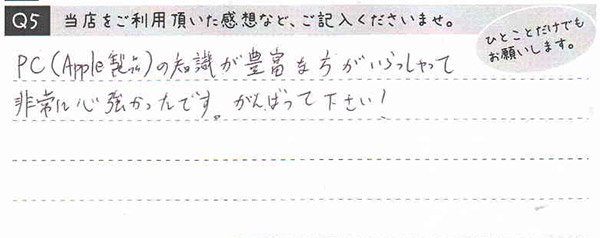 Q5 当店をご利用頂いた感想など、ご記入くださいませ。
ひとことだけでも
お願いします。
PC(Apple製品)の知識が豊富な方がいらっしゃって
非常に心強かったです。がんばって下さい!